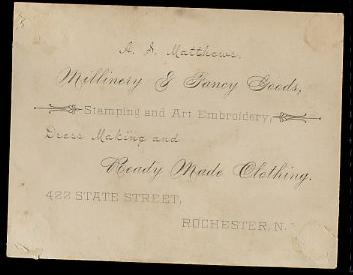 A. S. Matthews.
Millinery & Fancy Goods,
Stamping and Art Embroidery,
Dress Making and
Ready Made Clothing.
422 STATE STREET,
ROCHESTER, N.